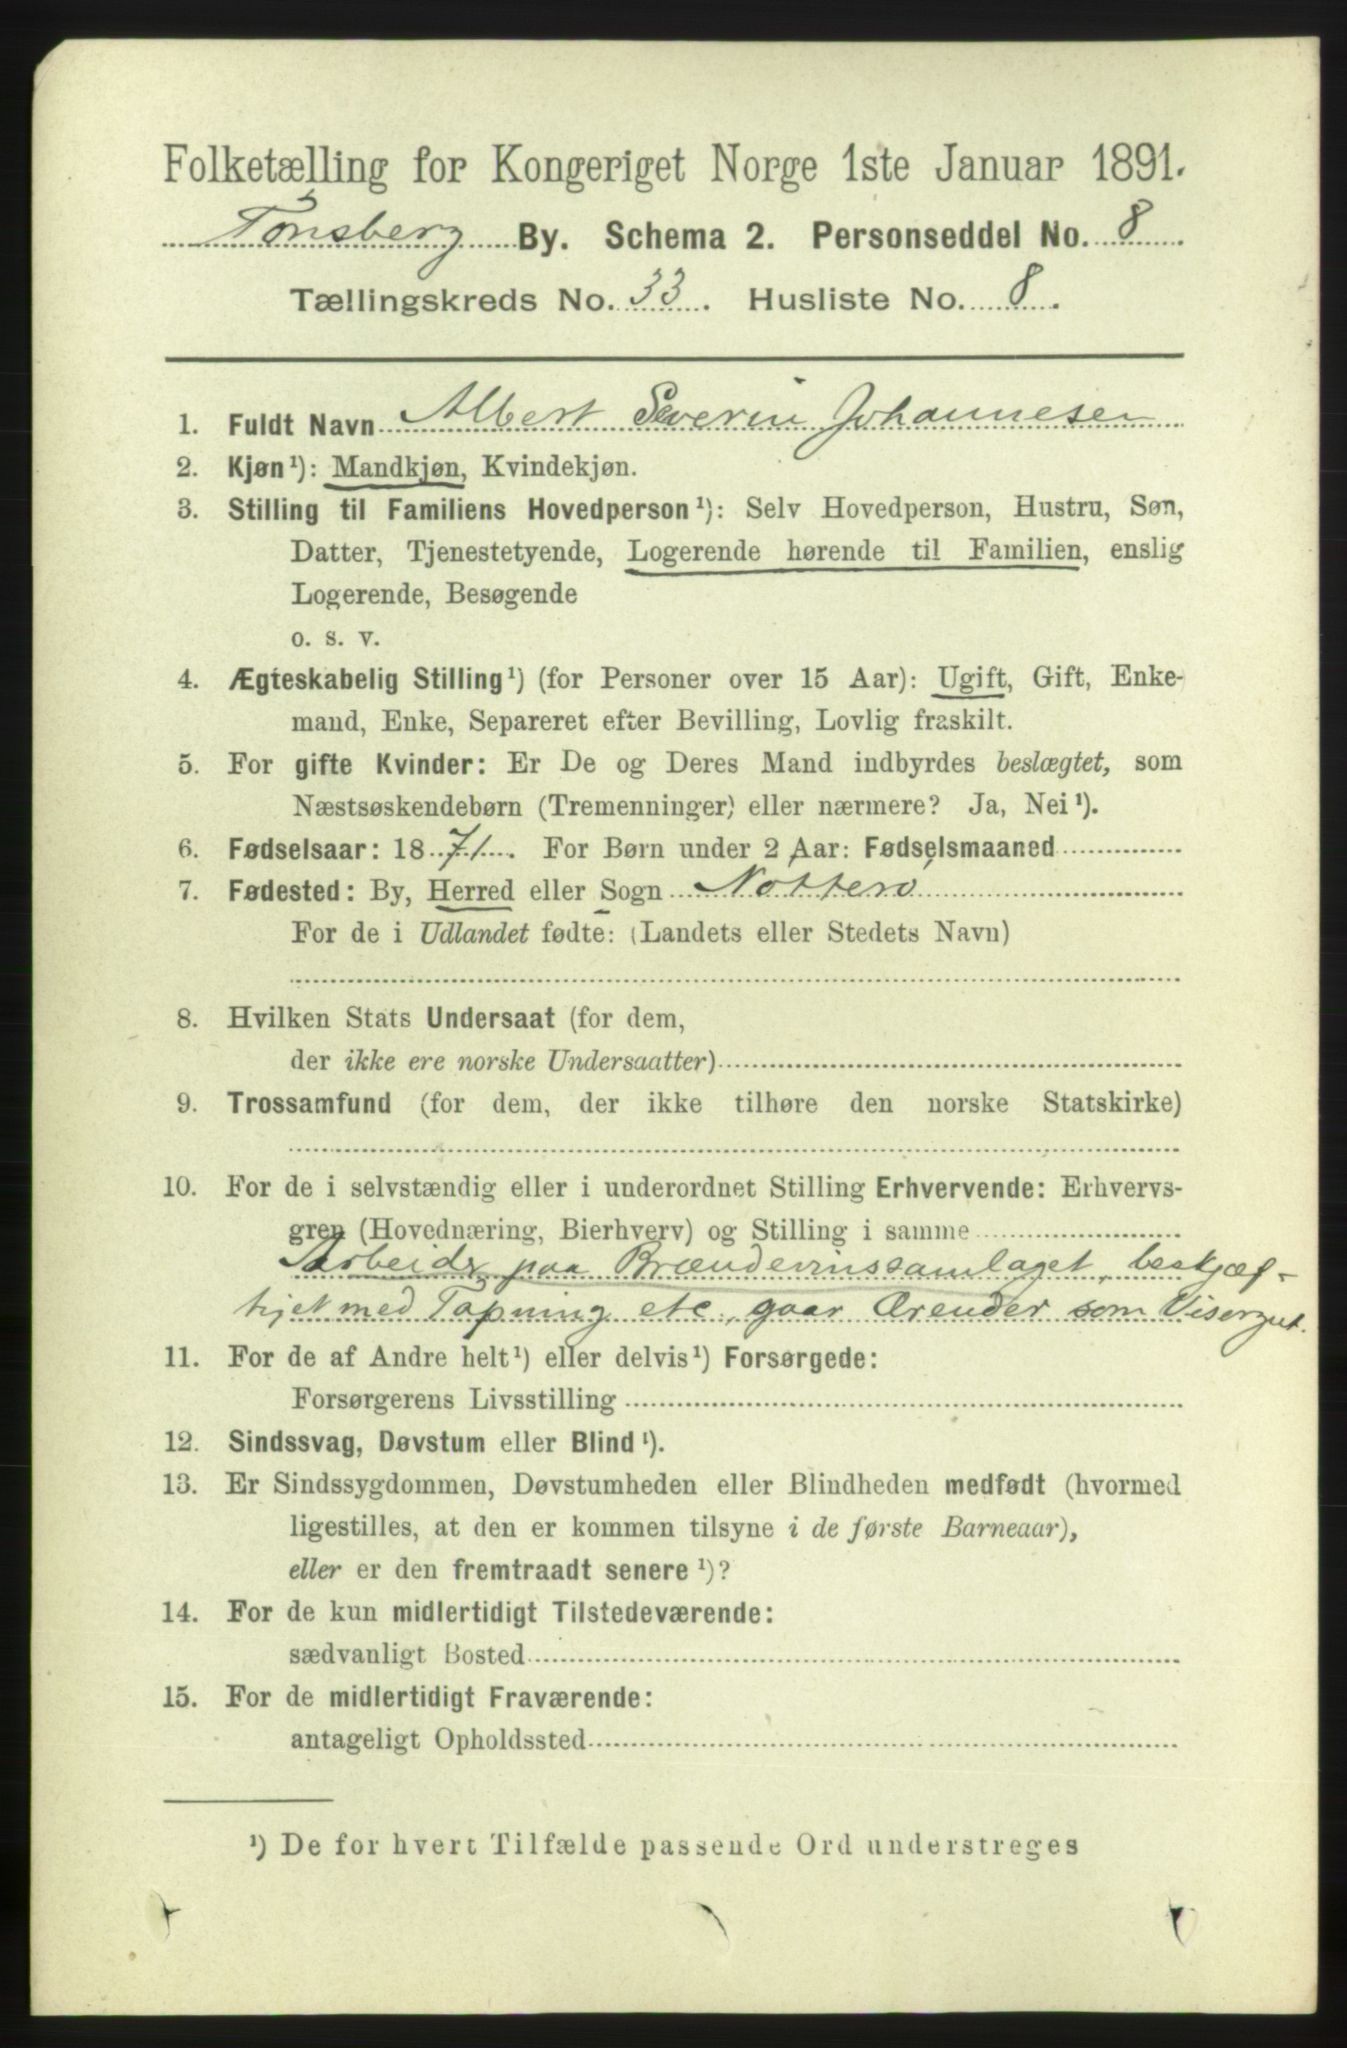 Folketælling for Kongeriget Norge 1ste Januar 1891.
Tönsberg By. Schema 2. Personseddel No. 8
Tællingskreds No. 33. Husliste No. 8.
1. Fuldt Navn Albert Severin Johannesen
2. Kjøn¹): Mandkjøn, Kvindekjøn.
3. Stilling til Familiens Hovedperson¹): Selv Hovedperson, Hustru, Søn,
Datter, Tjenestetyende, Logerende hørende til Familien, enslig
Logerende, Besøgende
o. s. v.
4. Ægteskabelig Stilling¹) (for Personer over 15 Aar): Ugift, Gift, Enke-
mand, Enke, Separeret efter Bevilling, Lovlig fraskilt.
5. For gifte Kvinder: Er De og Deres Mand indbyrdes beslægtet, som
Næstsøskendebørn (Tremenninger) eller nærmere? Ja, Nei¹).
6. Fødselsaar: 1871. For Børn under 2 Aar: Fødselsmaaned
7. Fødested: By, Herred eller Sogn Nötterö
For de i Udlandet fødte: (Landets eller Stedets Navn)
8. Hvilken Stats Undersaat (for dem,
der ikke ere norske Undersaatter)
9. Trossamfund (for dem, der ikke tilhøre den norske Statskirke)
10. For de i selvstændig eller i underordnet Stilling Erhvervende: Erhvervs-
gren (Hovednæring, Bierhverv) og Stilling i samme
Arbeider paa Brændevinssamlaget, beskjæf-
tjet med Tapning etc, gaar Ærender som Visergut.
11. For de af Andre helt¹) eller delvis¹) Forsørgede:
Forsørgerens Livsstilling
12. Sindssvag, Døvstum eller Blind¹).
13. Er Sindssygdommen, Døvstumheden eller Blindheden medfødt (hvormed
ligestilles, at den er kommen tilsyne i de første Barneaar),
eller er den fremtraadt senere¹)?
14. For de kun midlertidigt Tilstedeværende:
sædvanligt Bosted
15. For de midlertidigt Fraværende:
antageligt Opholdssted
¹) De for hvert Tilfælde passende Ord understreges